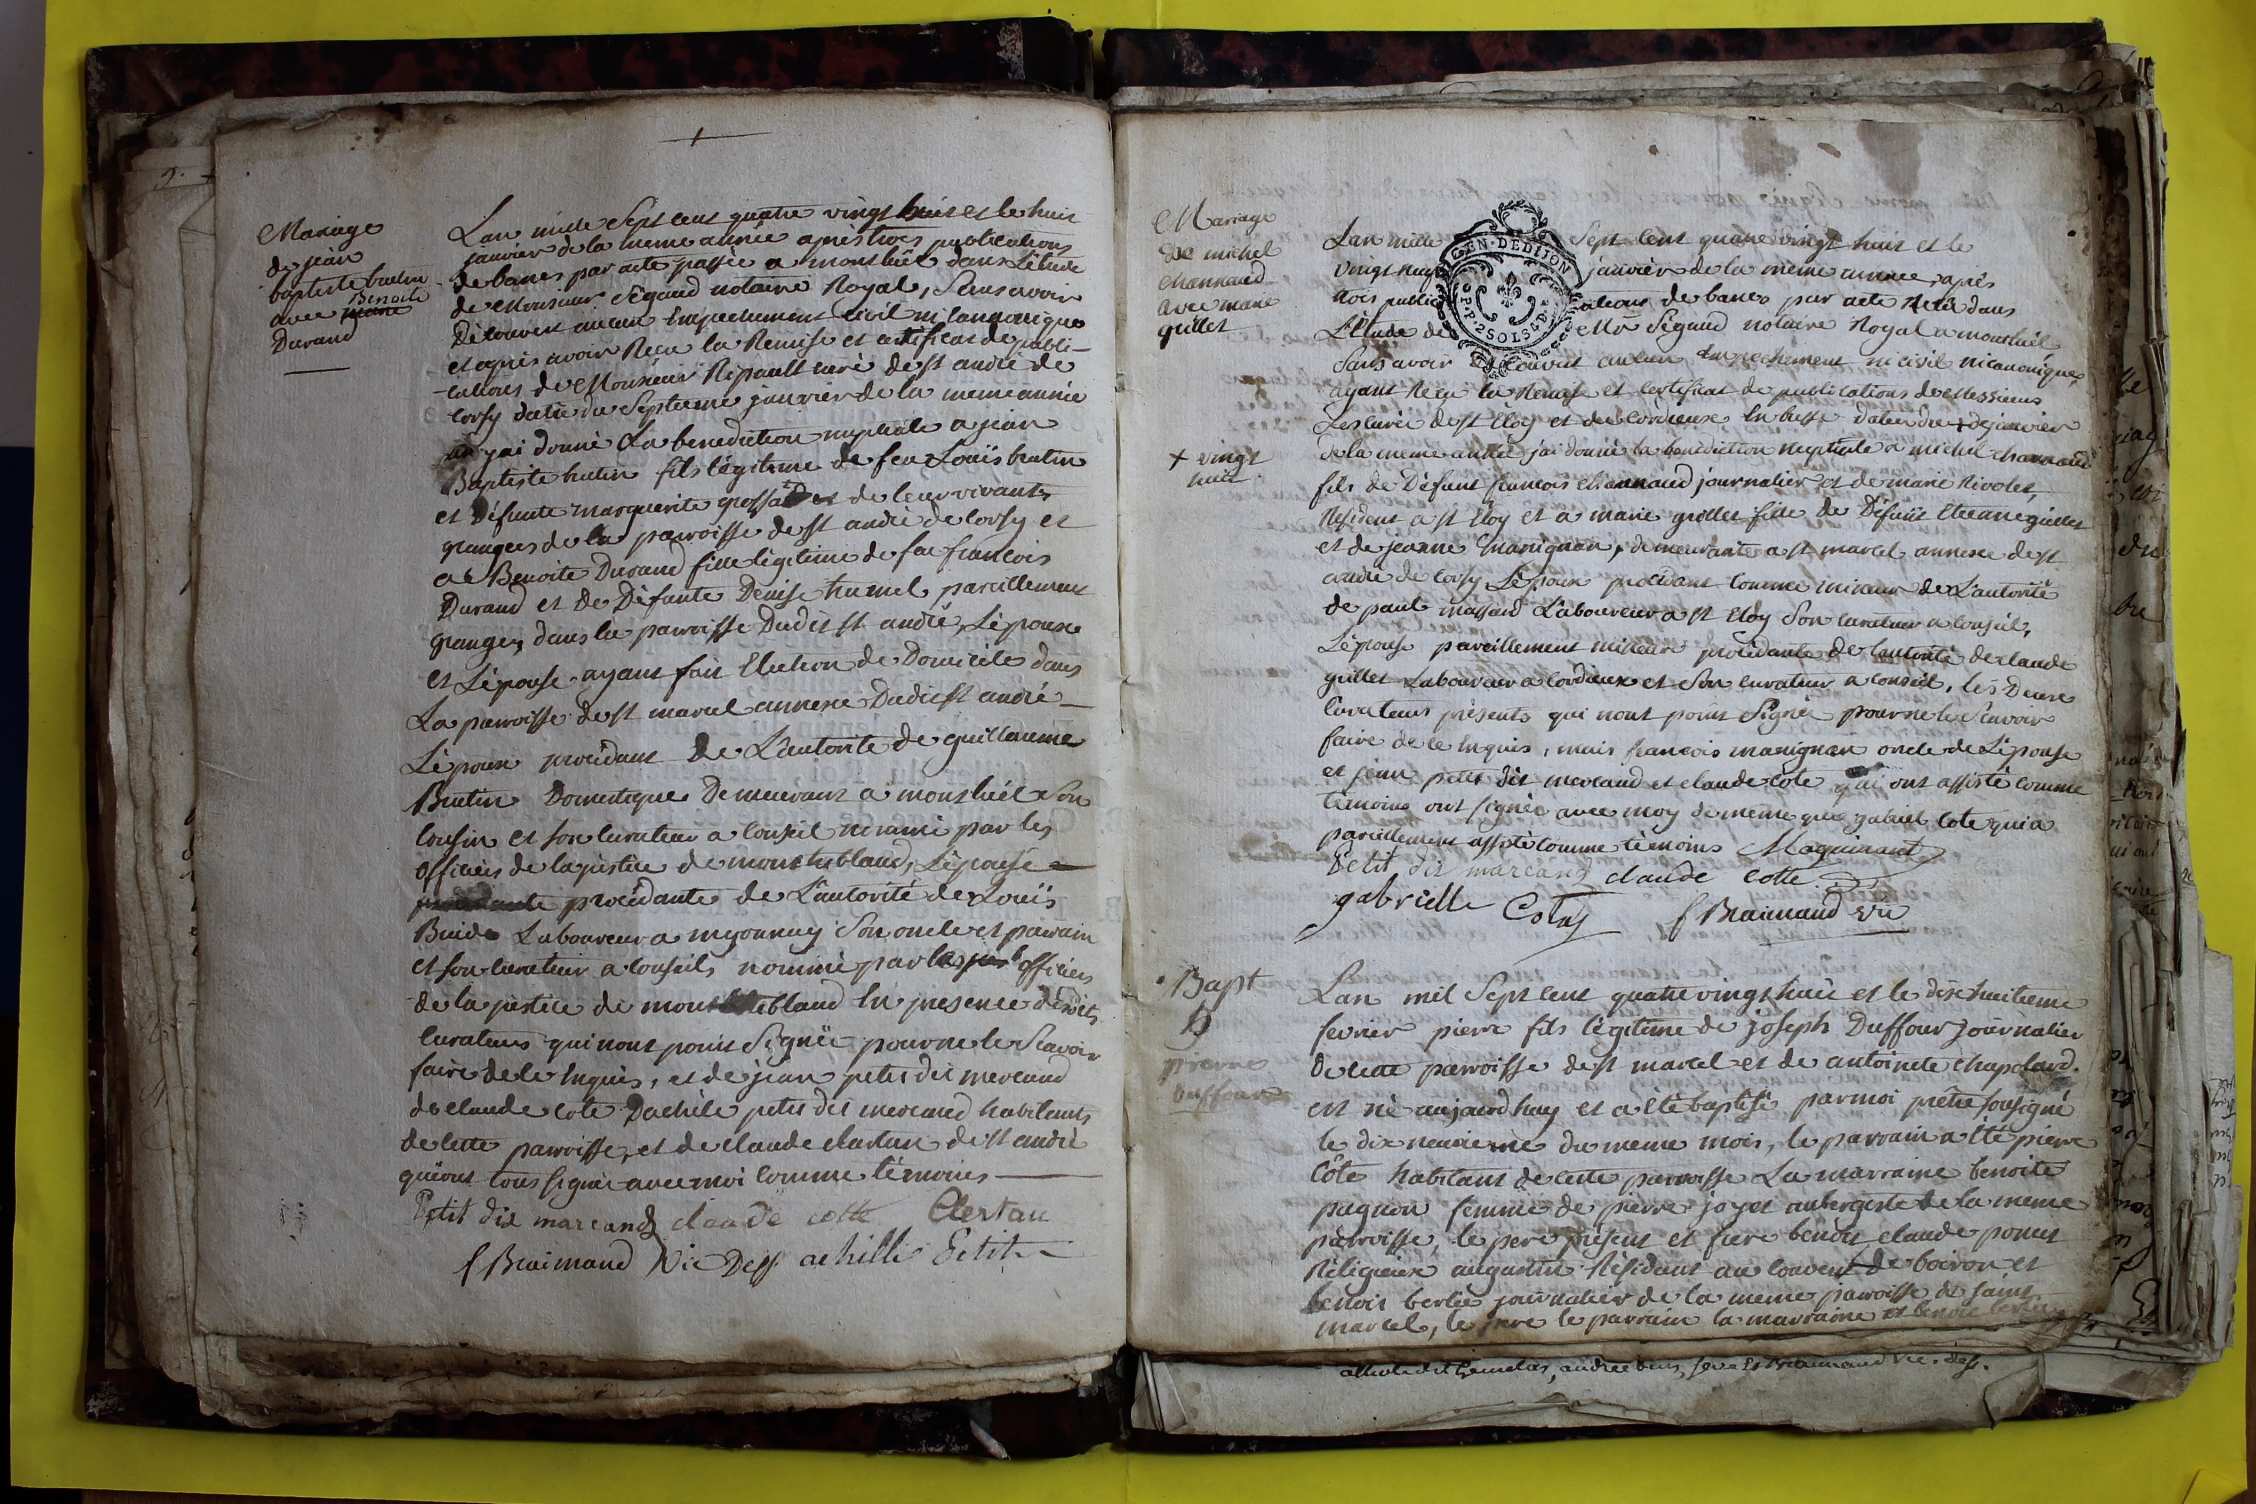 Mariage
de jean
baptiste brutin
avec Benoite
Durand
Lan mille Sept cent quatre vingt huit et le huit
janvier de la meme année après trois publications
de bancs par acte passée a montluel dans L'étude
de MonsieurSégaud notaire Royal, Sans avoir
Découvert aucun Empechement civil ni canonique
et après avoir Reçu la Remise et certificat de publi-
-cations de Monsieur Ripault curé de st andré de
Corsy datée du Septieme janvier de la meme année
j'ai donné La benediction nuptiale a jean
Baptiste brutin fils légitime de feu Louis brutin
et Défunte marguerite de leur vivants
grangers de la parroisse de st andré de Corsy et
a Benoite Durand fille légitime de feu francois
Durand et de Défunte Denise humel pareillement
granger dans la parroisse Dudit st andré, L'époux
et L'épouse ayant fait Election de Domicile dans
La parroisse de st marcel annexe Dudit st andré
L'époux procédant De L'autorité de guillaume
Brutin Domestique Demeurant à montluel Son
Cousin et son curateur a conseil nommé par les
officiers de la justice de montribloud, L'épouse
procédante de L'autorité de Louis
Buidé Laboureur a myonnay Son oncle et parrain
et son curateur a conseils nommé par les officiers
de la justice de montribloud En presence desdits
curateurs qui nont point Signée pour ne le Scavoir
faire de ce Enquis, et de jean petit dit mercand
de claude cote D'achile petit dit mercand habitants
de cette parroisse, et de claude clertan de st andré
qui ont tous signé avec moi comme témoins
Petit dit marcand claude cotte Clertan
f Braimand Vic Dess. achille Petit
Mariage
de michel
channand
avec marie
guillet
+ vingt
huit
Lan mille Sept cent quatre vingt huit et le
vingt neuf janvier de la meme année, après
trois publications de bancs par acte Reçu dans
L'Etude de Mr Ségaud notaire Royal a montluel
Sans avoir Découvert aucun Empechement ni civil ni canonique,
ayant Reçu la Remise et certificat de publications de Messieurs
Les curés de st Eloy et de Cordieux En bresse dater du + de janvier
de la meme année j'ai donné la benediction nuptiale a michel channand
fils de Défunt francois channand journalier et de marie Nicolet,
Résident a st Eloy et a marie guillet fille de Défunt Etienne guillet
et de jeanne manignan, demeurante a st marcel annexe de st
andré de Corsy L'époux procédant comme mineur de L'autorité
de paul massard Laboureur a st Eloy Son curateur a conseil,
L'épouse pareillement mineure procédante de lautorité de claude
guillet Laboureur a Cordieux et Son curateur a conseil, les Deux
Curateurs présents qui nont point Signée pour ne le Scavoir
faire de ce Enquis, mais francois manignan oncle de L'épouse
et jean petit dit mercand et claude cote qui ont assisté comme
témoins ont signée avec moy de meme que gabriel cote qui a
pareillement assisté comme témoins Magninant
Petit dit marcand claude cotte
gabrielle Cotte f Braimand vic
GEN. DE DIJON
P.P. 2 SOLS 4 D.
Bapt
D
pierre
duffour
Lan mil Sept cent quatre vingt huit et le dix huitieme
fevrier pierre fils légitime de joseph Duffour journalier
de cette parroisse de st marcel et de antoinete chapolard
est né aujourdhuy et a été baptisé par moi prêtre soussigné
le dix neuvieme du meme mois, le parrain a été pierre
Côte habitant de cette parroisse La marraine benoite
pagnon femme de pierre joyet aubergiste de la meme
parroisse, le pere présent et frere benoit claude ponut
Réligieux augustin Résidant au Couvent de boiron et
benoit berlie journalier de la meme parroisse de saint
marcel, le pere le parrain la marraine et benoit berlie